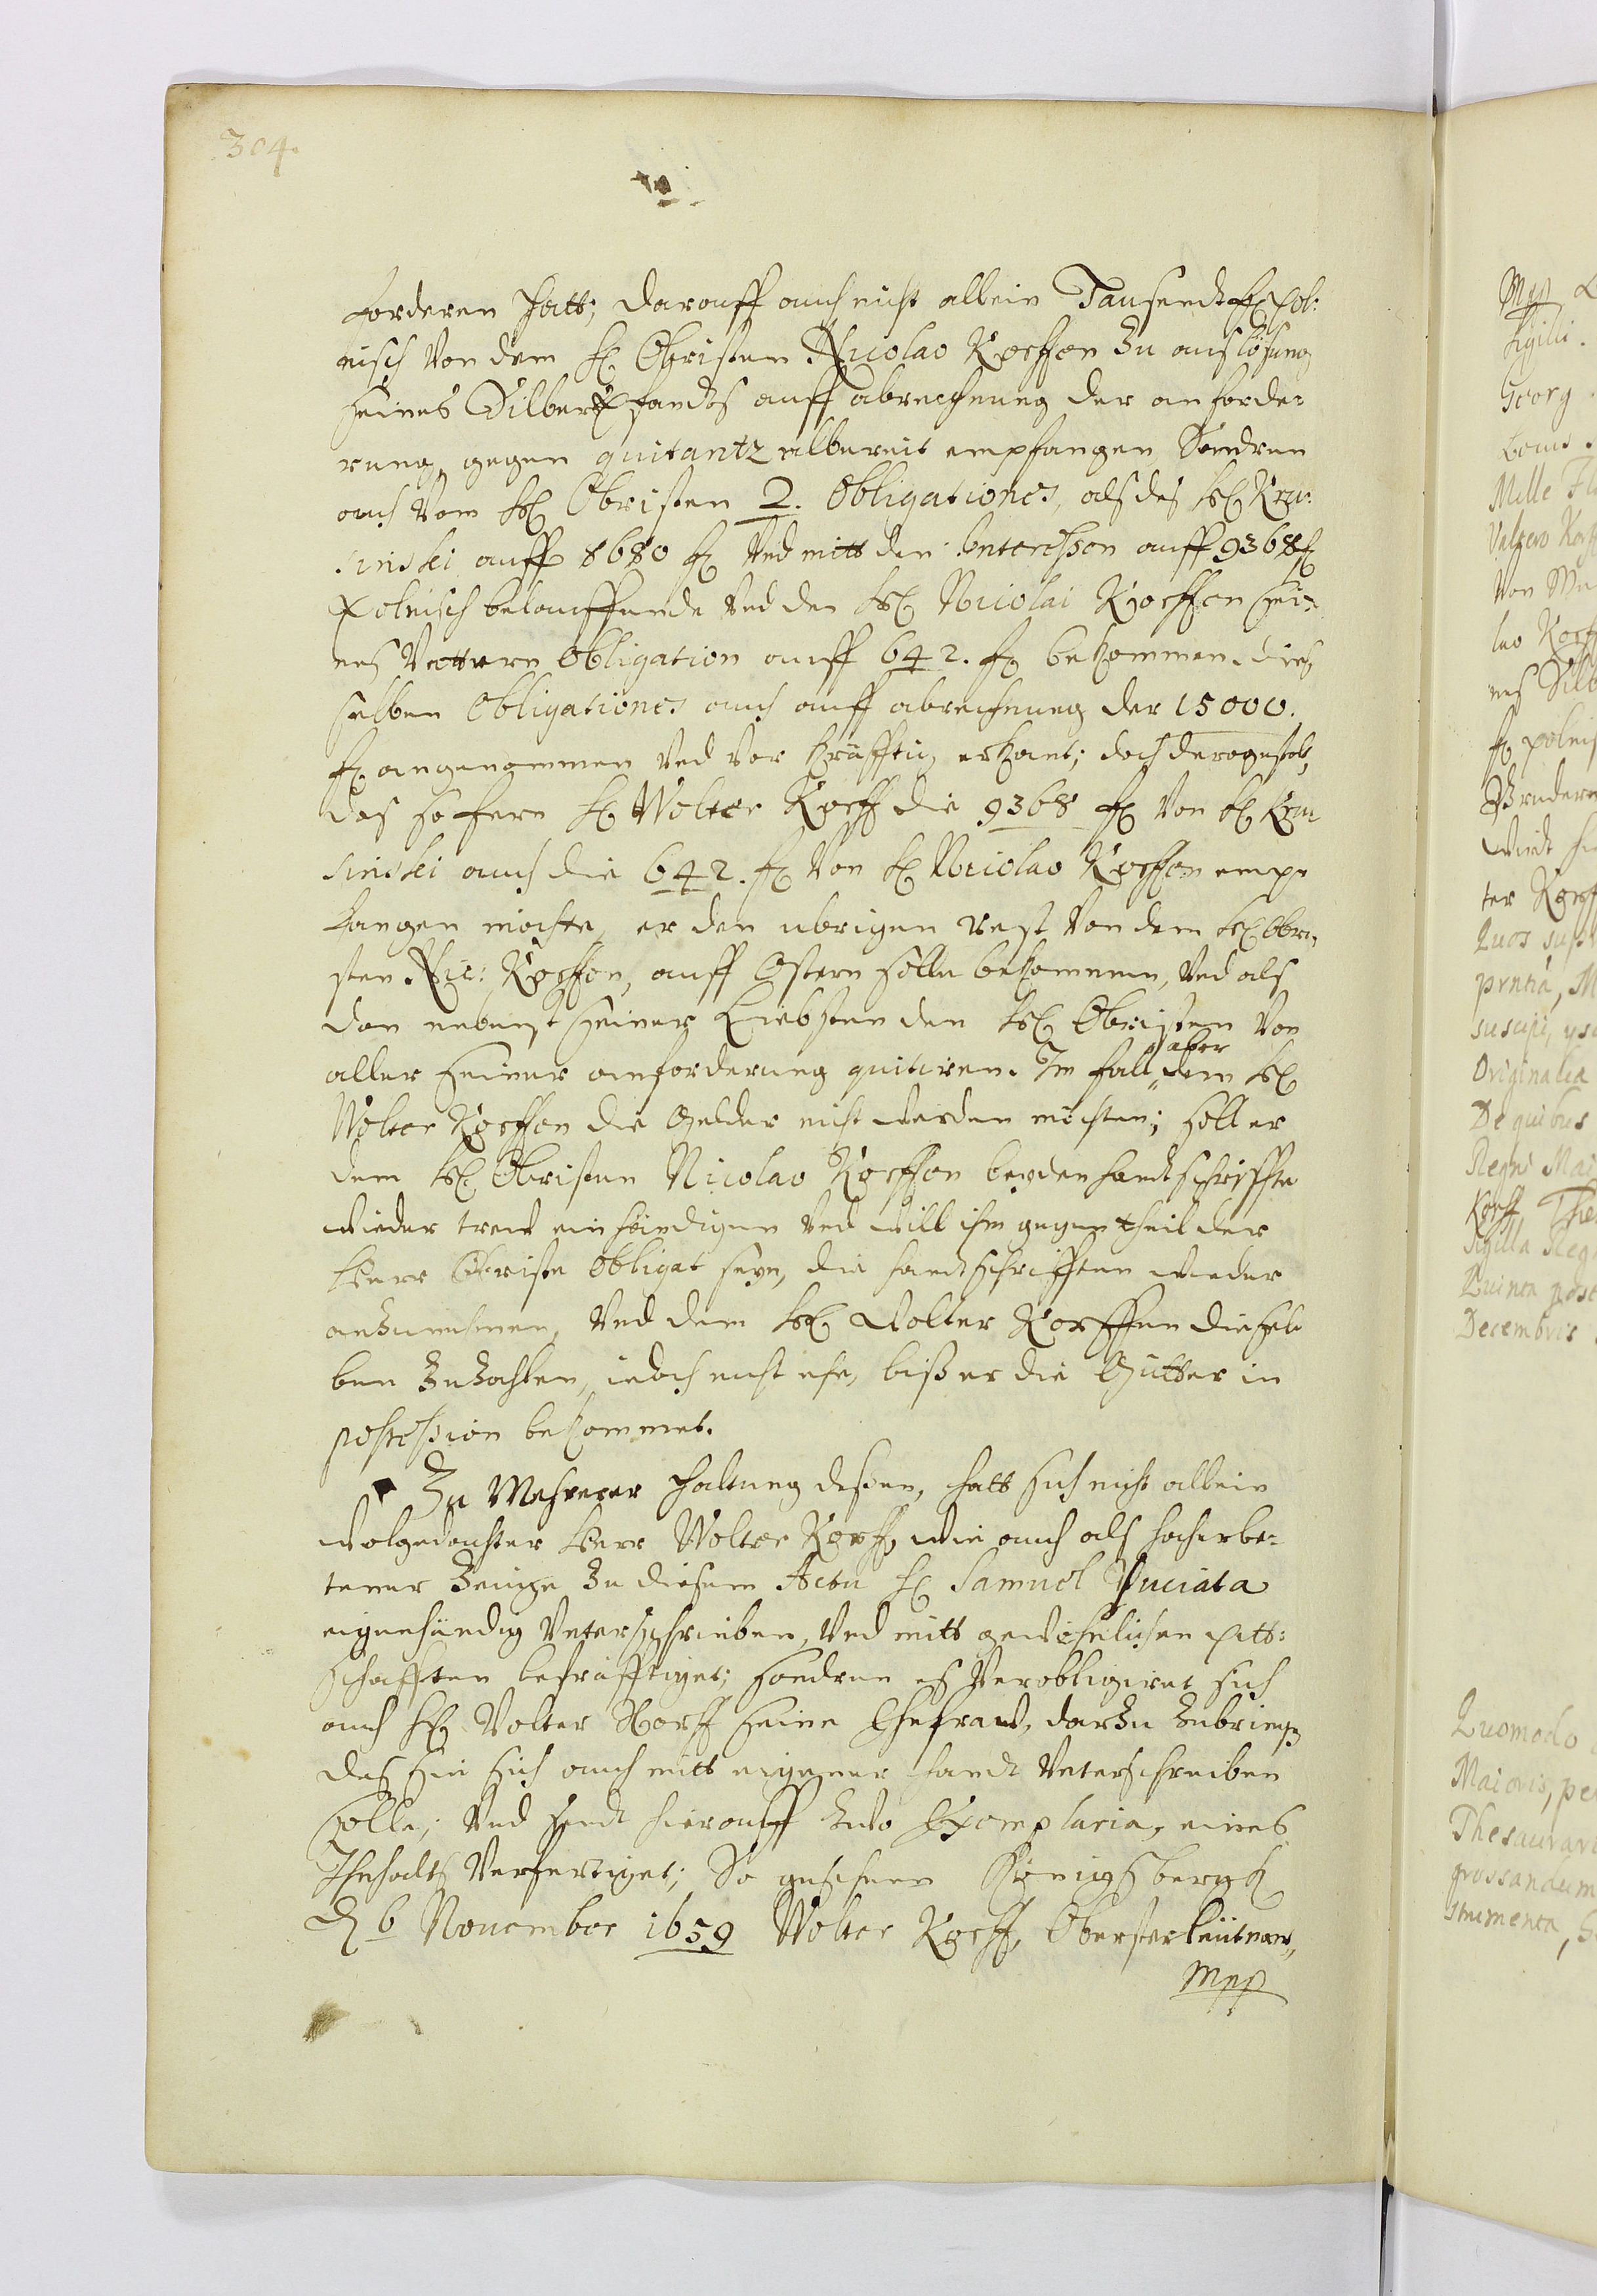 304.
forderen hatt; darauff auch nicht allein Tausendt fl Pol:
nisch von dem H. Obristen Nicolao Korffen zu auslösung
seines Silberpfandes auff abrechnung der anforde:
rung, gegen quitantz albereit empfangen Sondren
auch vom H. Obristen 2. Obligationes, als des H. Kru:
sinski auff 8680 fl Und mitt den Interessen auff 9368 fl
Polnisch belauffende Und der H. Nicolai Korffen sei:
nes Vettern Obligation auff 642. fl bekommen. dies
selben Obligationes auch auff abrechnung der 15000.
fl angenommen Und vor kräfftig erkant; doch derogestalt,
das so fern H. Wolter Korff die 9368 fl Von H. Kru
sinski auch die 642. fl Von H. Nicolao Korffen emp:
fangen möchte, er den ubrigen rest Von dem H. Obri:
sten Nic: Korffen, auff Ostern solle bekommen, Und als
dan nebenst seiner Liebsten den H. Obristen Von
aller seiner anforderung quitiren. Im fall aber dem H.
Wolter Korffen die Gelder nicht werden möchten; soll er
dem H. Obristen Nicolao Korffen beyden handtschriffte
wieder treu einhändigen Und will ihm gegentheil der
Herr Obriste Obligat seyn, die handtschrifften wieder
anzunehmen, Und dem H. Wolter Korffen dieselb
ben zuzahlen, iedoch nicht ehe, biß er die Gütter in
possession bekommet.
Zu Mehrerer haltung deßen, hatt sich nicht allein
wolgedachter Herr Wolter Korff, wie auch als hocherbe:
tener Zeuge zu diesem Actu H. Samuel Puciata
eigenhändig Unterschrieben, Und mitt gewöhnlichen Pitt:
schafften bekräfftiget; sondren es Verobligiret sich
auch H. Wolter Korff seine Ehefrau, darzu zubringen
das sie sich auch mitt eigener handt Unterschreiben
solle; Und sendt hierauff zwo Exemplaria, eines
Inhalts Verfertiget; So geschehen Königsbergk
d 6 Nouember 1659 Wolter Korff, Obersterleütnan,,
Mpp
Mpp
Sigilli.
Georg
Mille Fl
Valtero Korf
Von Wo
lao Korff
nes Silb
fl polnis
Brudern
ter Korff
Quos sus
prntia, M
suscipi, ysd
Originalia
De quibus
Regni Mai
Korff The
Sigilla Reg
Quinta post
Decembris
Quomodo
Maioris, per
Thesaurar
grossandum
strumenta,